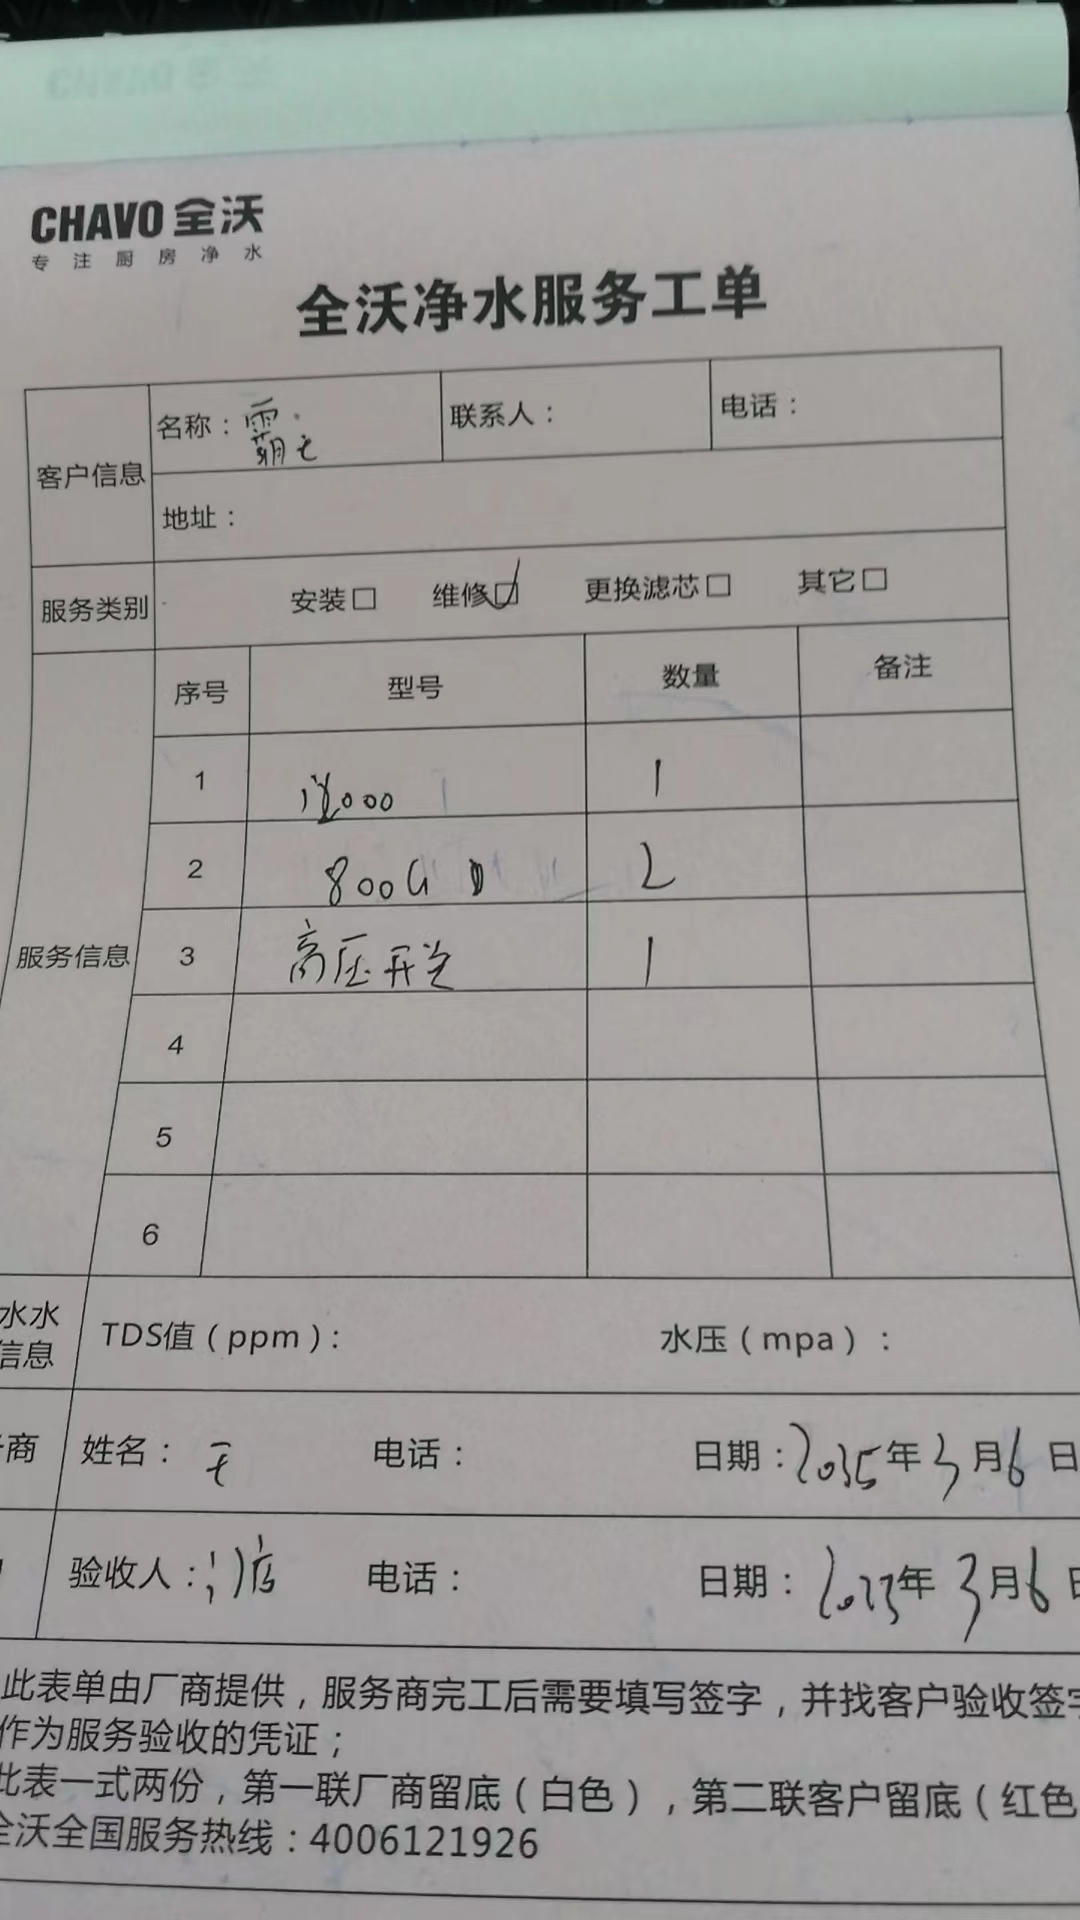 CHAVO 全沃
专注厨房净水
全沃净水服务工单
客户信息 名称：霸王 联系人： 电话：
地址：
服务类别 安装□ 维修☑ 更换滤芯□ 其它□
服务信息 序号 型号 数量 备注
1 1
2 800G 2
3 高压开关 1
4
5
6
水水
信息 TDS值（ppm）： 水压（mpa）：
商 姓名：王 电话： 日期：2025年3月6日
验收人： 店 电话： 日期：2023年3月6日
此表单由厂商提供，服务商完工后需要填写签字，并找客户验收签字
作为服务验收的凭证；
此表一式两份，第一联厂商留底（白色），第二联客户留底（红色
全沃全国服务热线：4006121926